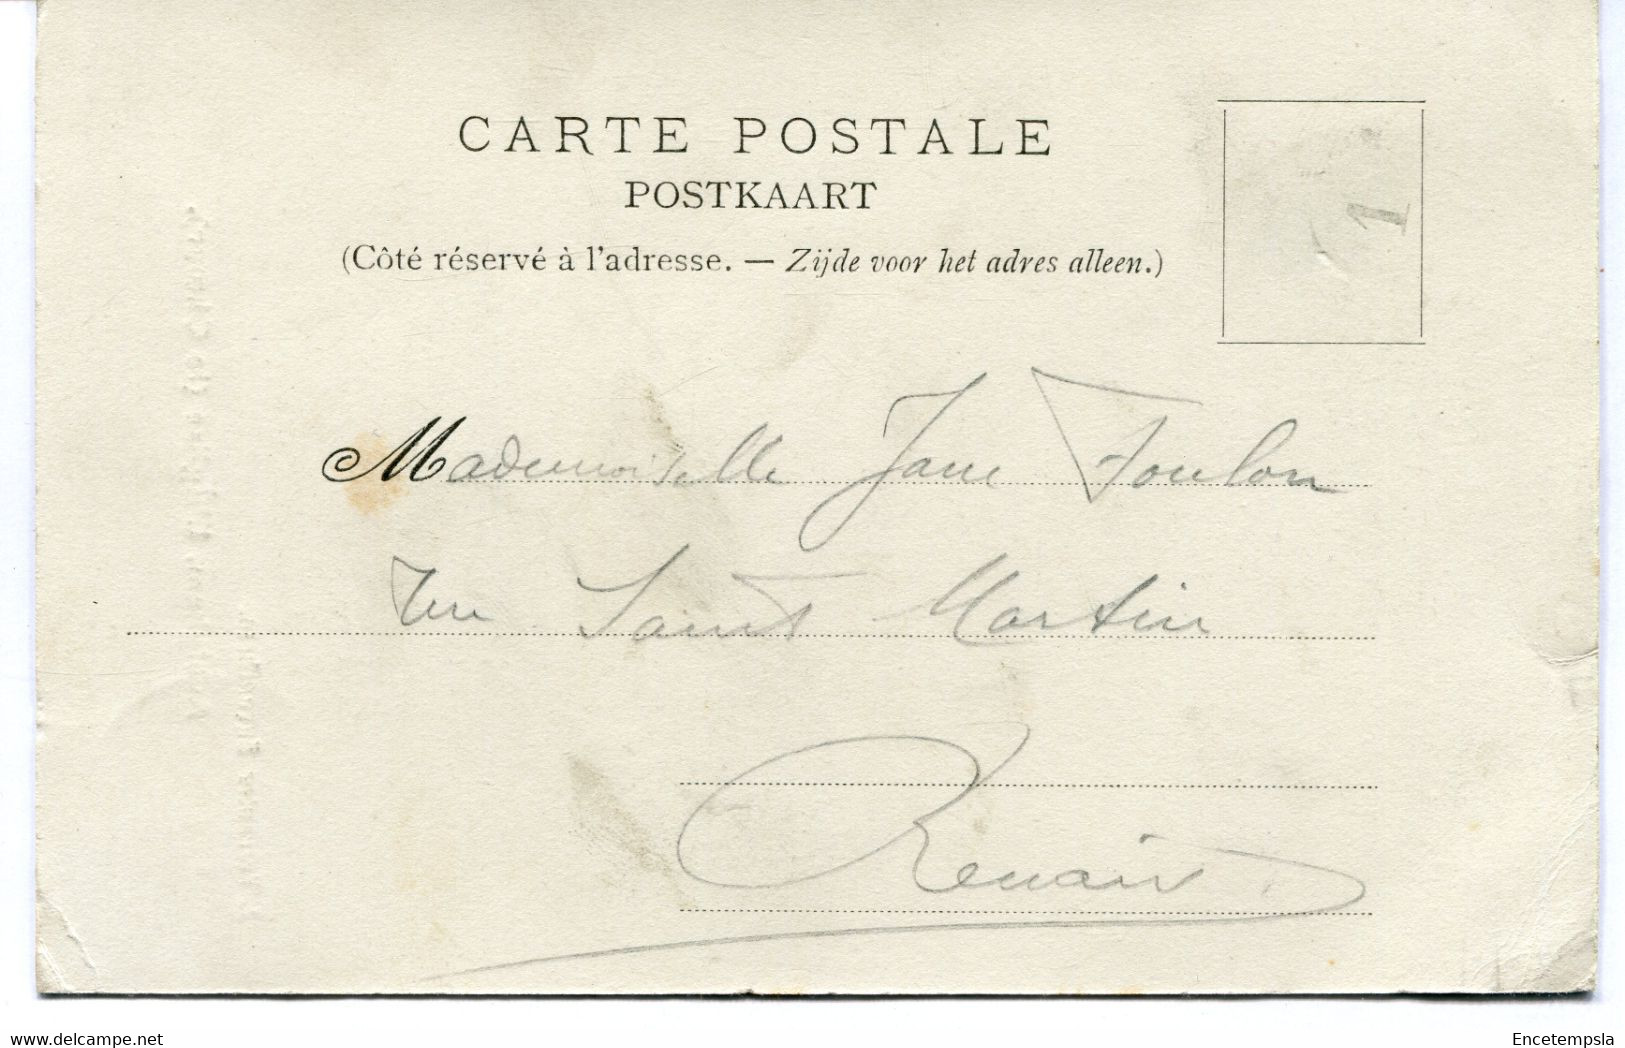 CARTE POSTALE
POSTKAART
(Côté réservé à l'adresse. — Zijde voor het adres alleen.)
1
Mademoiselle Jane Foulon
rue Saint Martin
Renaix
delcampe.net
Encetempsla